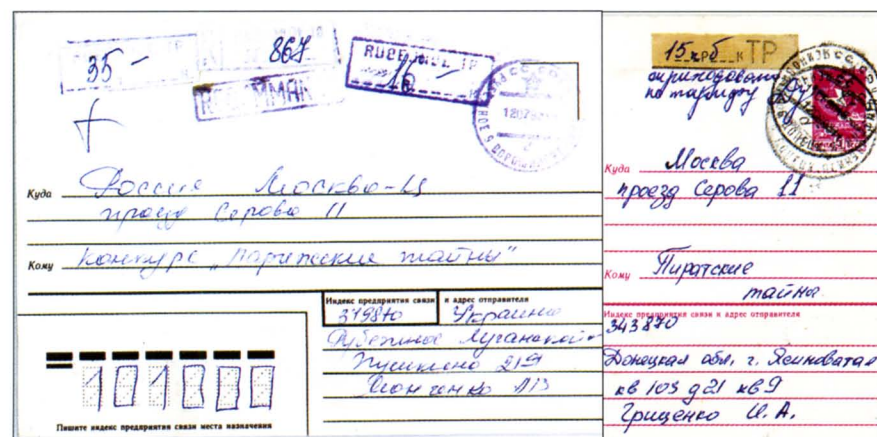 35 –
867
RUBEJNOE TP
15 –
RECOMMAN
Куда Россия Москва-Ц
проезд Серова 11
Кому Конкурс „Парижские тайны"
Индекс предприятия связи и адрес отправителя
Украина
Рубежное Луганской
219
Пишите индекс предприятия связи места назначения
101000
15 р 5 к ТР
по тарифу
Куда Москва
проезд Серова 11
Кому Пиратские
тайны
Индекс предприятия связи и адрес отправителя
343870
Донецкая обл. г. Ясиноватая
кв 103 д 21 кв 9
Грищенко И. А.